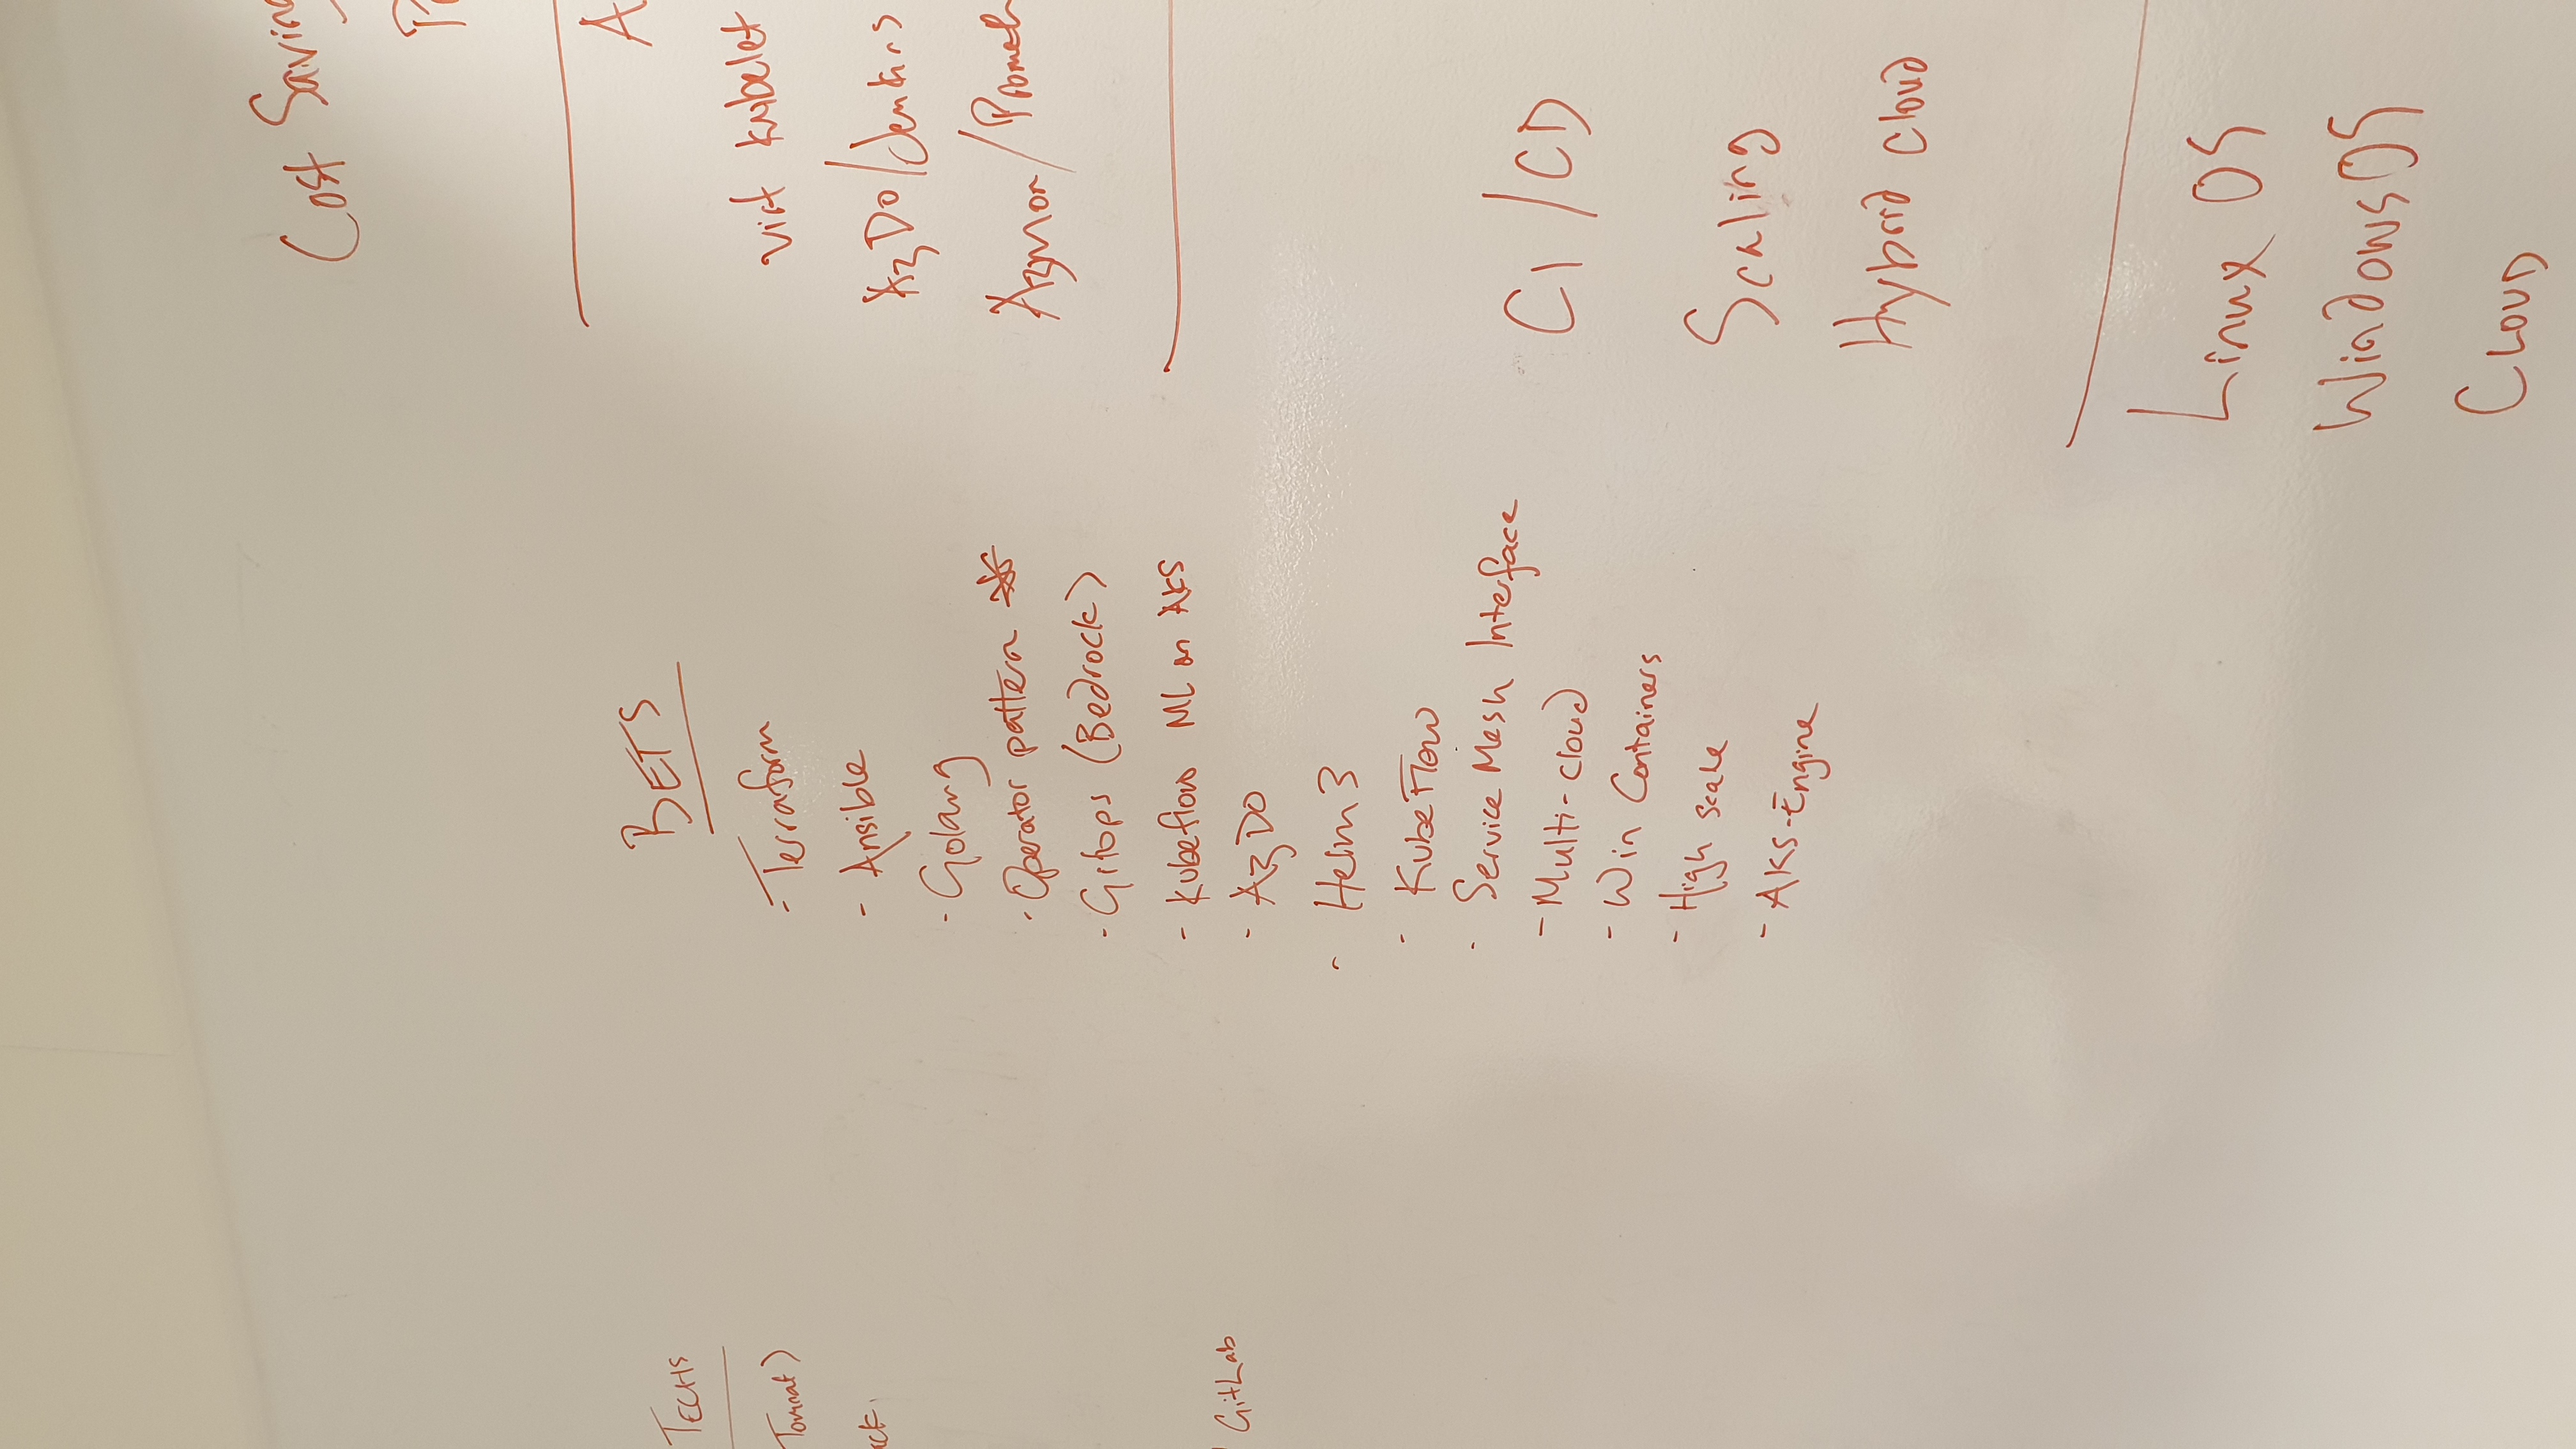 TECHS
Tomcat)
GitLab
BETS
- Terraform
- Ansible
- Golang
- Operator pattern *
- Gitops (Bedrock)
- Kubeflow ML on AKS
- AzDO
- Helm 3
- KubeFlow
- Service Mesh Interface
- Multi-cloud
- Win Containers
- High scale
- AKS-Engine
Cost Saving
A
virt kubelet
AzDO/Jenkins
AzMon/Prometh
CI/CD
Scaling
Hybrid cloud
Linux OS
Windows OS
CLOUD